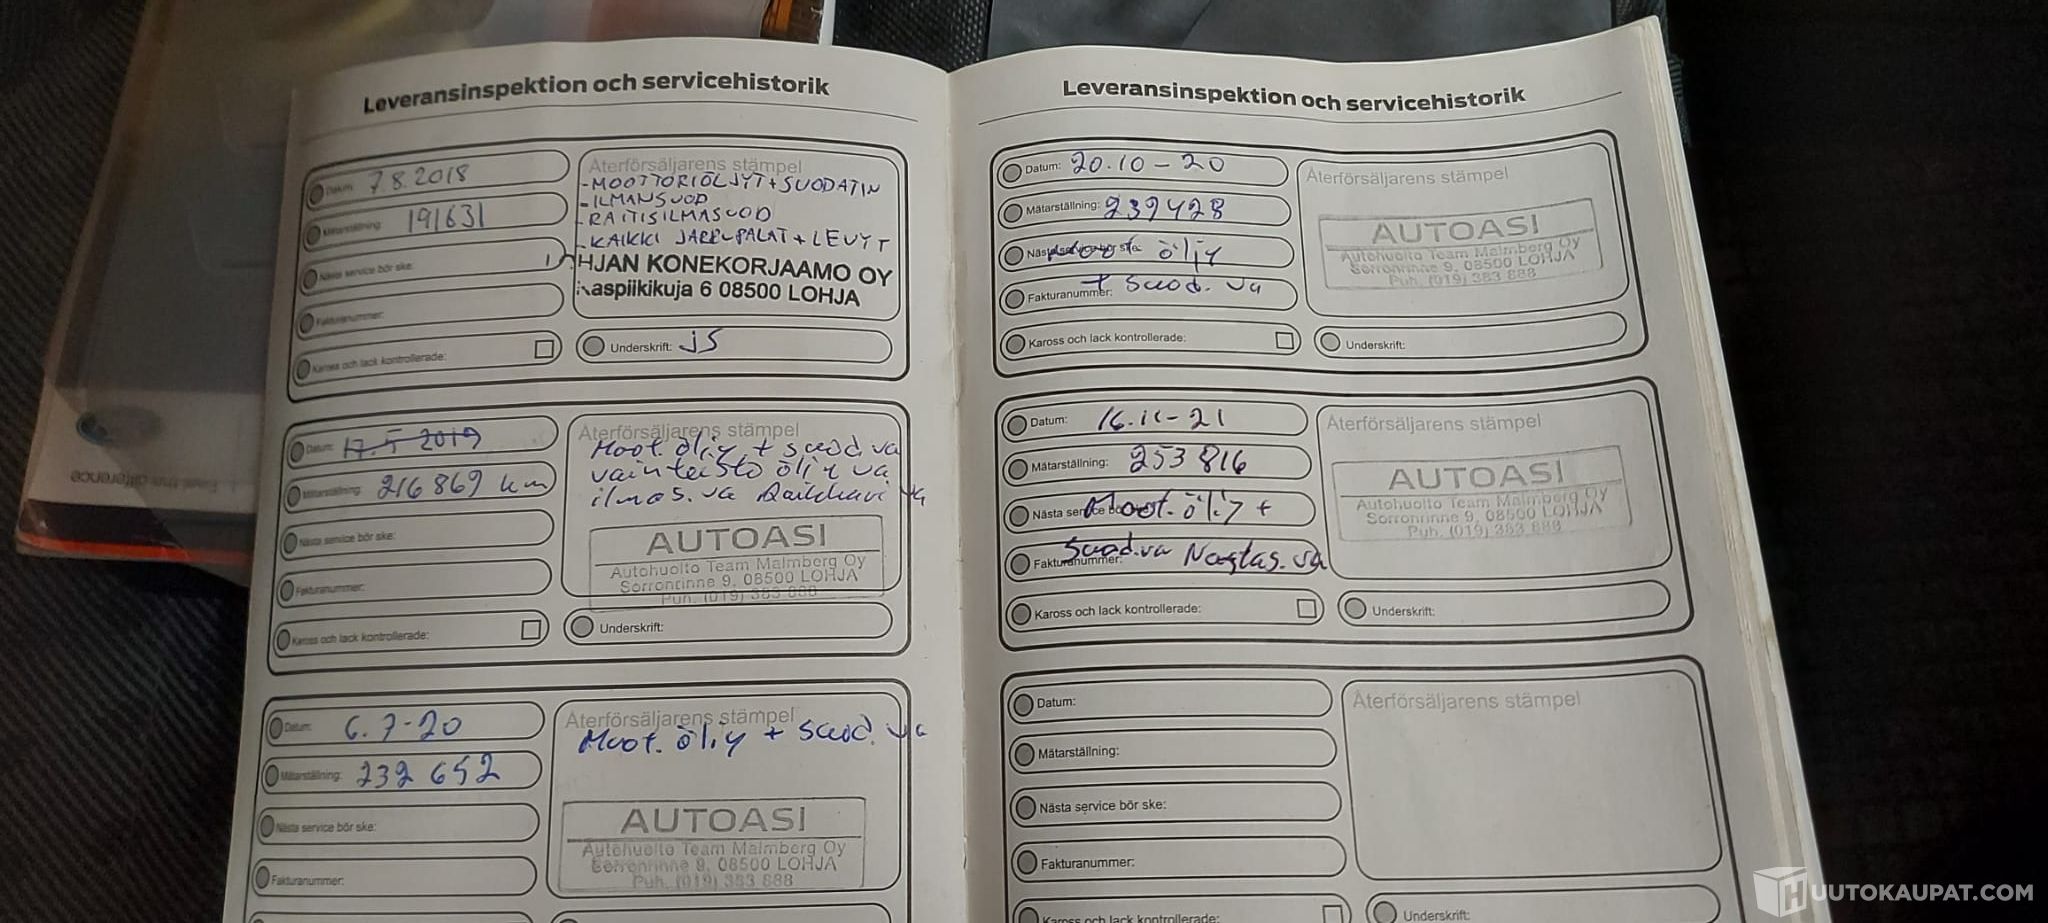 Leveransinspektion och servicehistorik
Datum: 7.8.2018
Mätarställning: 191631
Nästa service bör ske:
Fakturanummer:
Kaross och lack kontrollerade:
Återförsäljarens stämpel
-MOOTTORIÖLJYT+SUODATIN
-ILMANSUOD
-RAITISILMASUOD
-KAIKKI JARRUPALAT+LEVYT
HJAN KONEKORJAAMO OY
aspiikikuja 6 08500 LOHJA
Underskrift: JS
Datum: 17.5 2019
Mätarställning: 216869 km
Nästa service bör ske:
Fakturanummer:
Kaross och lack kontrollerade:
Återförsäljarens stämpel
Moot. öljy + suod. va
vaihteisto öljy va
ilmas. va Raikkavi va
AUTOASI
Autohuolto Team Malmberg Oy
Sorronrinne 9, 08500 LOHJA
Puh. (019) 383 888
Underskrift:
Datum: 6.7-20
Mätarställning: 232 652
Nästa service bör ske:
Fakturanummer:
Återförsäljarens stämpel
Moot. öljy + suod. va
AUTOASI
Autohuolto Team Malmberg Oy
Sorronrinne 9, 08500 LOHJA
Puh. (019) 383 888
Leveransinspektion och servicehistorik
Datum: 20.10-20
Mätarställning: 239428
Moot. öljy
Fakturanummer: + suod. va
Kaross och lack kontrollerade:
Återförsäljarens stämpel
AUTOASI
Autohuolto Team Malmberg Oy
Sorronrinne 9, 08500 LOHJA
Puh. (019) 383 888
Underskrift:
Datum: 16.11-21
Mätarställning: 253816
Nästa service Moot. öljy +
Fakturanummer: Suod. va Naftas. va
Kaross och lack kontrollerade:
Återförsäljarens stämpel
AUTOASI
Autohuolto Team Malmberg Oy
Sorronrinne 9, 08500 LOHJA
Puh. (019) 383 888
Underskrift:
Datum:
Mätarställning:
Nästa service bör ske:
Fakturanummer:
Kaross och lack kontrollerade:
Återförsäljarens stämpel
Underskrift:
Feel the difference
HUUTOKAUPAT.COM